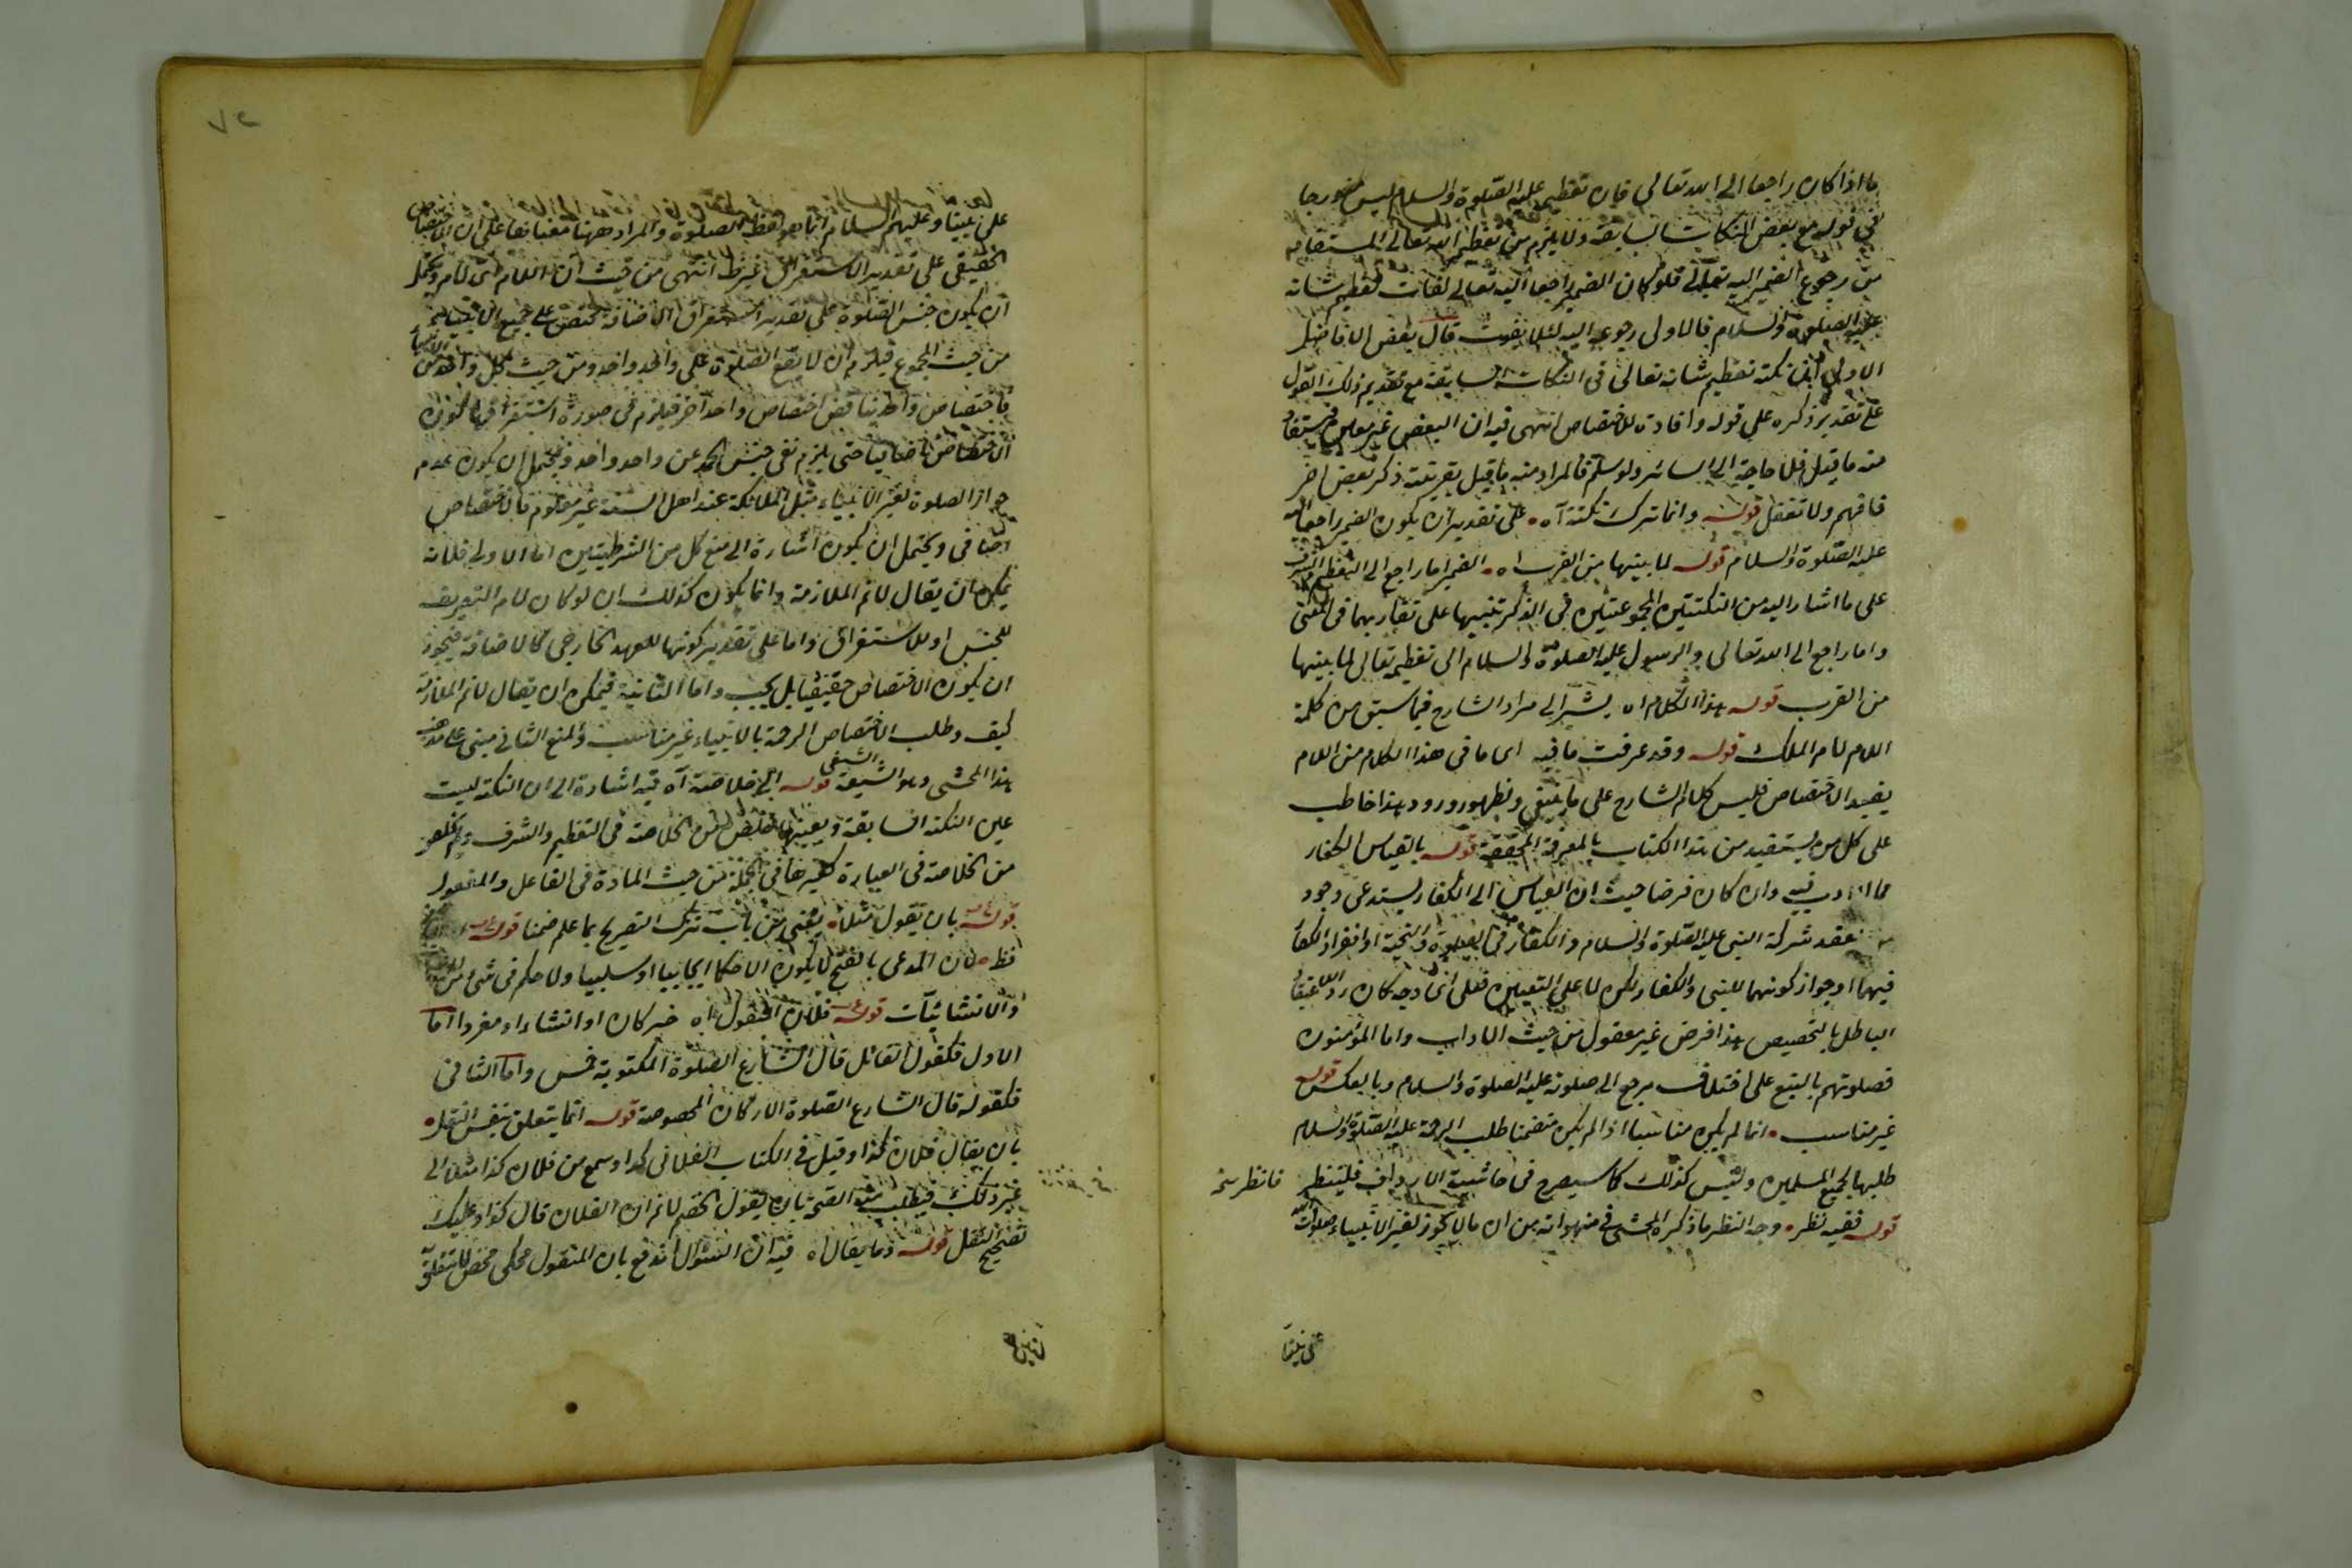 ما اذا كان راجعا الى الله تعالى فان تعظيم عليه الصلوة والسلام ليس
في قوله مع بعض النكات السابقة ولا يلزم من تعظيم الله تعالى المستفاد
من رجوع الضمير اليه تعالى فلو كان الضمير راجعا اليه تعالى لفات تعظيم شانه
عليه الصلوة والسلام فالاولى رجوعه اليه لئلا يفوت قال بعض الافاضل
الاولى نكتة تعظيم شانه تعالى في النكات السابقة مع تقديم ذلك القول
على تقدير ذكره على قوله وافادة للاختصاص انتهى فيه ان البعض غير
منه ما قيل فلا حاجة الى السائر ولو سلم فالمراد منه ما قيل بقرينة ذكر بعض اخر
فافهم ولا تغفل قوله وانما ترك نكتة آه على تقدير ان يكون الضمير راجعا اليه
عليه الصلوة والسلام قوله لما بينها من القرب اه الضمير اما راجع الى التعظيم
على ما اشار اليه من النكتتين المجموعتين في الذكر تنبيها على تقاربهما في المعنى
واما راجع الى الله تعالى والرسول عليه الصلوة والسلام الى تعظيمه تعالى لما بينها
من القرب قوله هذا الكلام اه يشير الى مراد الشارح فيما سبق من كلمة
اللام لام الملك قوله وقد عرفت ما فيه اى ما في هذا الكلام من اللام
يفيد الاختصاص فليس كلام الشارح على ما ينبغي ولظهور ورود هذا خاطب
على كل من يستفيد من هذا الكتاب بالمعرفة المحققة قوله بالقياس الكفار
مما ادب فيه وان كان فرضا حيث ان القياس الى الكفار يستدعى وجود
عقد شركة النبي عليه الصلوة والسلام والكفار في الصلوة والتحية او انفراد الكفار
فيهما او جواز كونهما للنبي والكفار لكن لا على التعيين فعلى اى وجه كان رد
الباطل بالتخصيص هذا فرض غير معقول من حيث الاداب واما المؤمنون
فصلوتهم بالتبع على اختلاف مرجع الى صلوته عليه الصلوة والسلام وبالعكس قوله
غير مناسب انما لم يكن مناسبا اذا لم يكن متضمنا طلب الرحمة عليه الصلوة والسلام
طلبها لجميع المسلمين وليس كذلك كما سيصرح في حاشية الارداف فلينظر
قوله ففيه نظر وجه النظر ما ذكره المحشى في منهواته من ان ما لا يجوز لغير الانبياء صلوات الله
فانظر نخ
على نبينا
٧٢
على نبينا وعليهم السلام انما هو لفظ الصلوة والمراد ههنا معناها على ان الاختصاص
الحقيقى على تقدير الاستغراق غير انتهى من حيث ان اللام اى لام
ان يكون جنس الصلوة على تقدير استغراق الاضافة مختص على جميع الانبياء
من حيث المجموع فيلزم ان لا يقع الصلوة على واحد واحد ومن حيث كل واحد من الانبياء
فاختصاص واحد ينافى اختصاص واحد آخر فيلزم في صورة استغراقها كون
الاختصاص اضافيا حتى يلزم نفى جنس الحمد عن واحد واحد ويحتمل ان يكون عدم
جواز الصلوة لغير الانبياء مثل الملائكة عند اهل السنة غير معلوم فالاختصاص
اضافى ويحتمل ان يكون اشارة الى منع كل من الشرطيتين اما الاولى فلانه
يمكن ان يقال لانم الملازمة وانما يكون كذلك ان لو كان لام التعريف
للجنس او للاستغراق واما على تقدير كونها للعهد الخارجى كالاضافة فيجوز
ان يكون الاختصاص حقيقيا بل يجب واما الثانية فيمكن ان يقال لانم الملازمة
كيف وطلب الاختصاص الرحمة بالانبياء غير مناسب والمنع الثانى مبنى على مذهب
هذا المحشى وهو الشيعة الشنفى قوله اى خلاصة آه فيه اشارة الى ان النكتة ليست
عين النكتة السابقة وبعينها من الخلاصة في التعظيم والشرف
من الخلاصة في العبارة لتغيرها في الجملة من حيث المادة في الفاعل والمفعول
قوله بان تقول مثلا يعنى من باب ترك التصريح بما علم ضمنا قوله
فظ لان المدعى بالفتح لا يكون الا حكما ايجابيا او سلبيا ولا حكم في شئ من
والانشائيات قوله فلان المنقول اه خبر كان او انشاء او مفردا اما
الاول فكقول القائل قال الشارع الصلوة المكتوبة خمس واما الثانى
فكقوله قال الشارع الصلوة الاركان المخصوصة قوله انما يتعلق بنفس النقل
بان يقال فلان كذا او قيل في الكتاب الفلانى كذا وسمع من فلان كذا مثلا الى
غير ذلك فيطلب منه الصحة بان يقول الخصم لانم ان الفلان قال كذا وعليك
تصحيح النقل قوله وما يقال اه فيه ان السؤال اندفع بان المنقول محكى محض